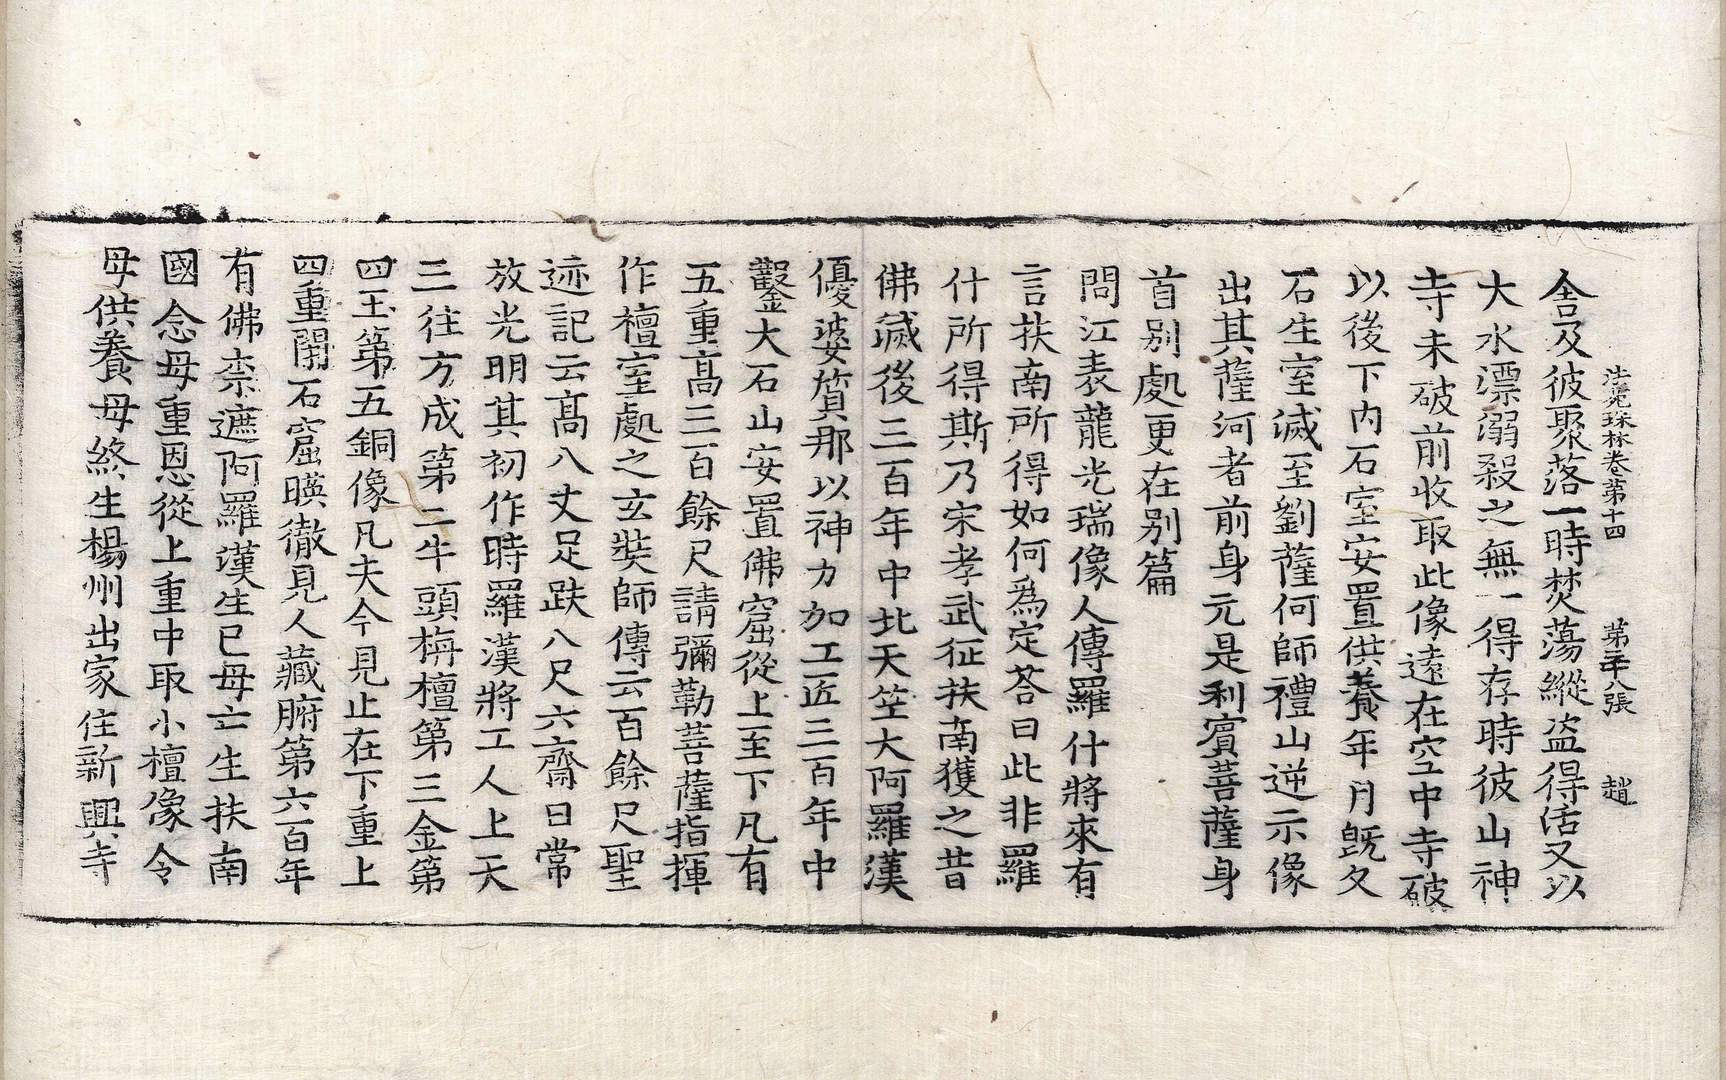 法苑珠林卷第十四 第二十八張 趙
舎及彼聚落一時焚蕩縱盗得活又以
大水漂溺殺之無一得存時彼山神
寺未破前收取此像遠在空中寺破
以後下内石室安置供養年月旣久
石生室滅至劉薩何師禮山逆示像
出其薩河者前身元是利賓菩薩身
首别處更在别篇
問江表龍光瑞像人傳羅什將來有
言扶南所得如何爲定荅曰此非羅
什所得斯乃宋孝武征扶南獲之昔
佛滅後三百年中北天笁大阿羅漢
優婆質那以神力加工匠三百年中
鑿大石山安置佛窟從上至下凡有
五重高三百餘尺請彌勒菩薩指揮
作檀室處之玄奘師傳云百餘尺聖
迹記云髙八丈足趺八尺六齋日常
放光明其初作時羅漢將工人上天
三往方成第二牛頭栴檀第三金第
四玉第五銅像凡夫今見止在下重上
四重閉石窟暎徹見人藏腑第六百年
有佛柰遮阿羅漢生已母亡生扶南
國念母重恩從上重中取小檀像令
母供養母終生楊州出家住新興寺